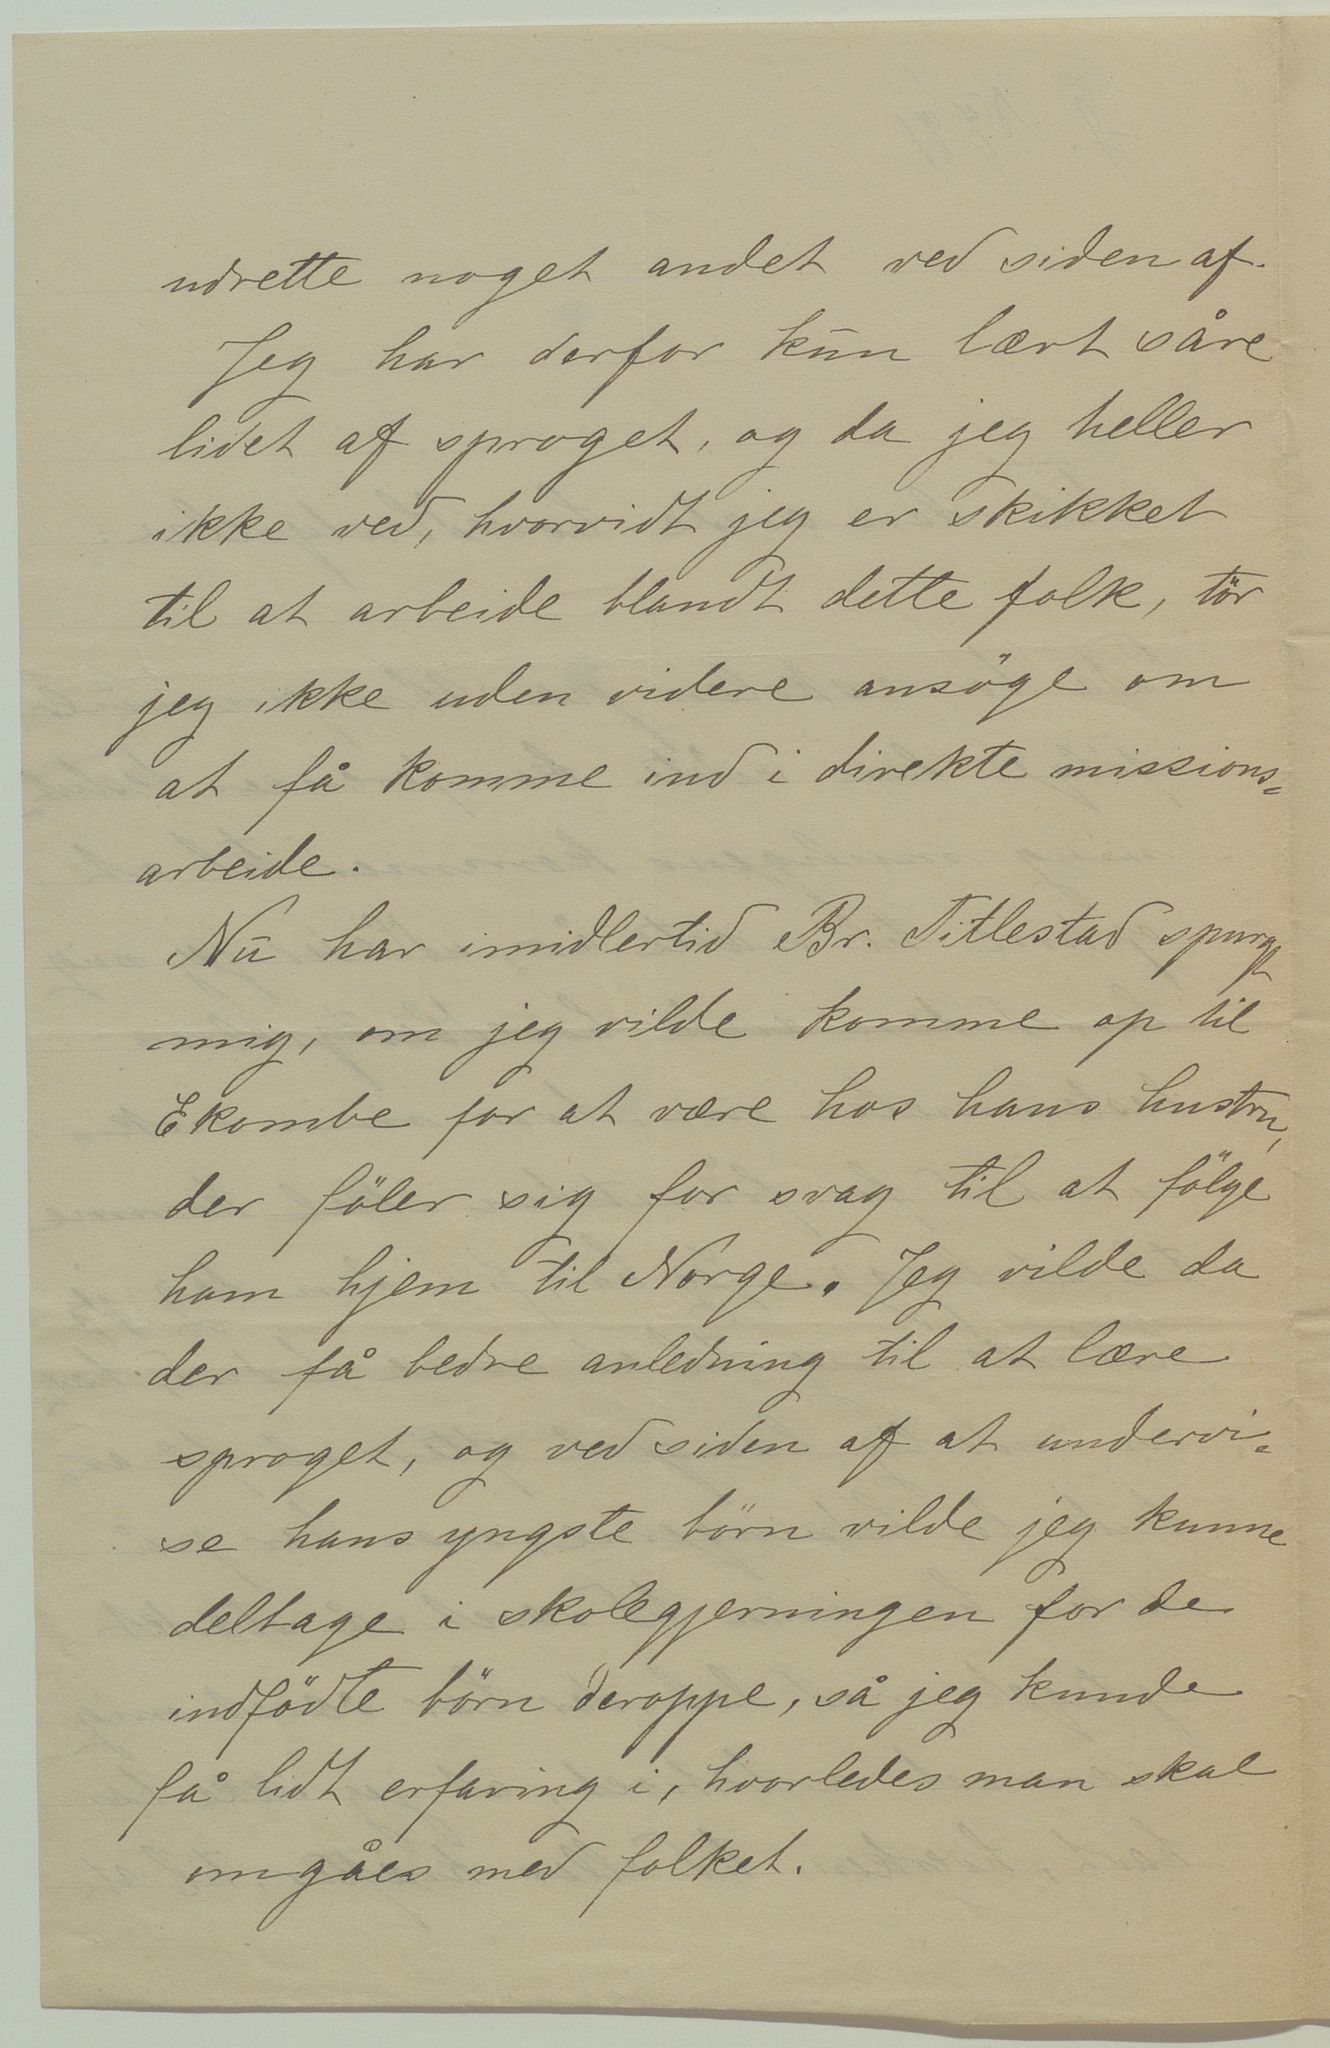 udrette noget andet ved siden af.
Jeg har derfor kūn lært såre
lidet af sproget, og da jeg heller
ikke ved, hvorvidt jeg er skikket
til at arbeide blandt dette folk, tör
jeg ikke uden videre ansöge om
at få komme ind i direkte missions-
arbeide.
Nū har imidlertid Br. Titlestad spurgt
mig, om jeg vilde komme op til
Ekombe for at være hos hans hustru,
der föler sig for svag til at fölge
ham hjem til Norge. Jeg vilde da
der få bedre anledning til at lære
sproget, og ved siden af at undervi-
se hans yngste börn vilde jeg kunne
deltage i skolegjerningen for de
indfödte börn deroppe, så jeg kunde
få lidt erfaring i, hvorledes man skal
omgåes med folket.